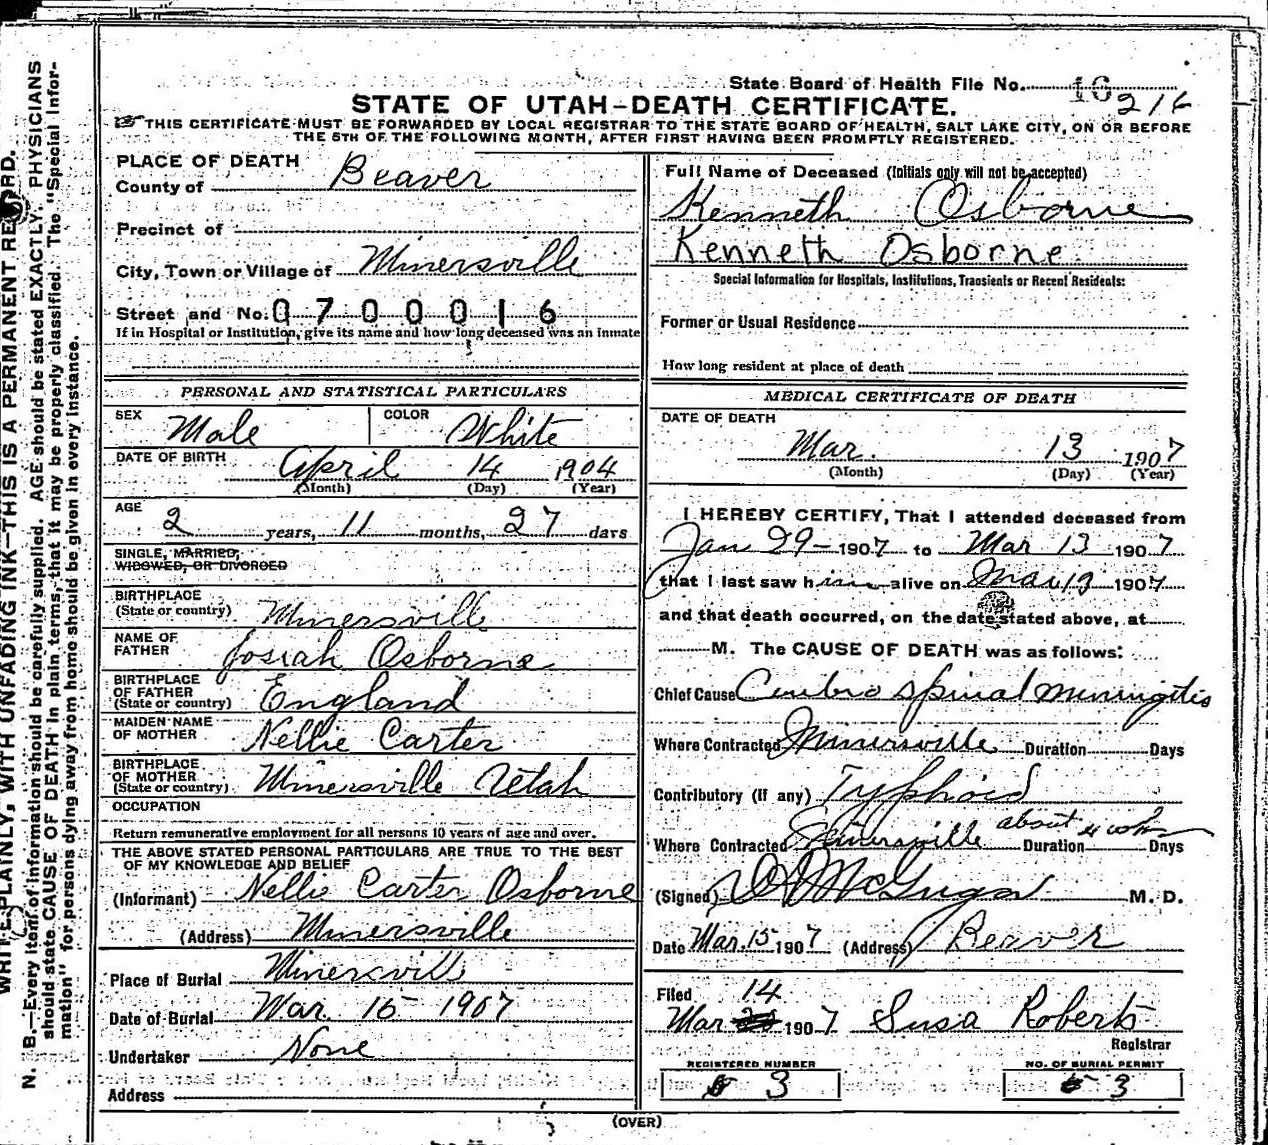 State Board of Health File No. 16
216
STATE OF UTAH—DEATH CERTIFICATE.
THIS CERTIFICATE MUST BE FORWARDED BY LOCAL REGISTRAR TO THE STATE BOARD OF HEALTH, SALT LAKE CITY, ON OR BEFORE
THE 5TH OF THE FOLLOWING MONTH, AFTER FIRST HAVING BEEN PROMPTLY REGISTERED.
PLACE OF DEATH
County of Beaver
Precinct of
City, Town or Village of Minersville
Street and No. 0700016
If in Hospital or Institution, give its name and how long deceased was an inmate
PERSONAL AND STATISTICAL PARTICULARS
SEX Male COLOR White
DATE OF BIRTH April 14 1904
(Month) (Day) (Year)
AGE 2 years, 11 months, 27 days
SINGLE, MARRIED,
WIDOWED, OR DIVORCED
BIRTHPLACE
(State or country) Minersville
NAME OF
FATHER Josiah Osborne
BIRTHPLACE
OF FATHER
(State or country) England
MAIDEN NAME
OF MOTHER Nellie Carter
BIRTHPLACE
OF MOTHER
(State or country) Minersville Utah
OCCUPATION
Return remunerative employment for all persons 10 years of age and over.
THE ABOVE STATED PERSONAL PARTICULARS ARE TRUE TO THE BEST
OF MY KNOWLEDGE AND BELIEF
(Informant) Nellie Carter Osborne
(Address) Minersville
Place of Burial Minersvill
Date of Burial Mar. 15 1907
Undertaker None
Address
Full Name of Deceased (Initials only will not be accepted)
Kenneth Osborne
Kenneth Osborne
Special Information for Hospitals, Institutions, Transients or Recent Residents:
Former or Usual Residence
How long resident at place of death
MEDICAL CERTIFICATE OF DEATH
DATE OF DEATH
Mar. 13 1907
(Month) (Day) (Year)
I HEREBY CERTIFY, That I attended deceased from
Jan 29 – 1907 to Mar 13 1907
that I last saw him alive on Mar 13 1907
and that death occurred, on the date stated above, at
M. The CAUSE OF DEATH was as follows:
Chief Cause Cerebro spinal meningitis
Where Contracted Minersville Duration Days
Contributory (If any) Typhoid
Where Contracted Minersville Duration about 4 wks Days
(Signed) McGugan M. D.
Date Mar. 15 1907 (Address) Beaver
Filed 14
Mar 1907 Susa Roberts
Registrar
REGISTERED NUMBER
3
NO. OF BURIAL PERMIT
3
(OVER)
WRITE PLAINLY, WITH UNFADING INK—THIS IS A PERMANENT RECORD.
N. B.—Every item of information should be carefully supplied. AGE should be stated EXACTLY. PHYSICIANS
should state CAUSE OF DEATH in plain terms, that it may be properly classified. The "Special Infor-
mation" for persons dying away from home should be given in every instance.